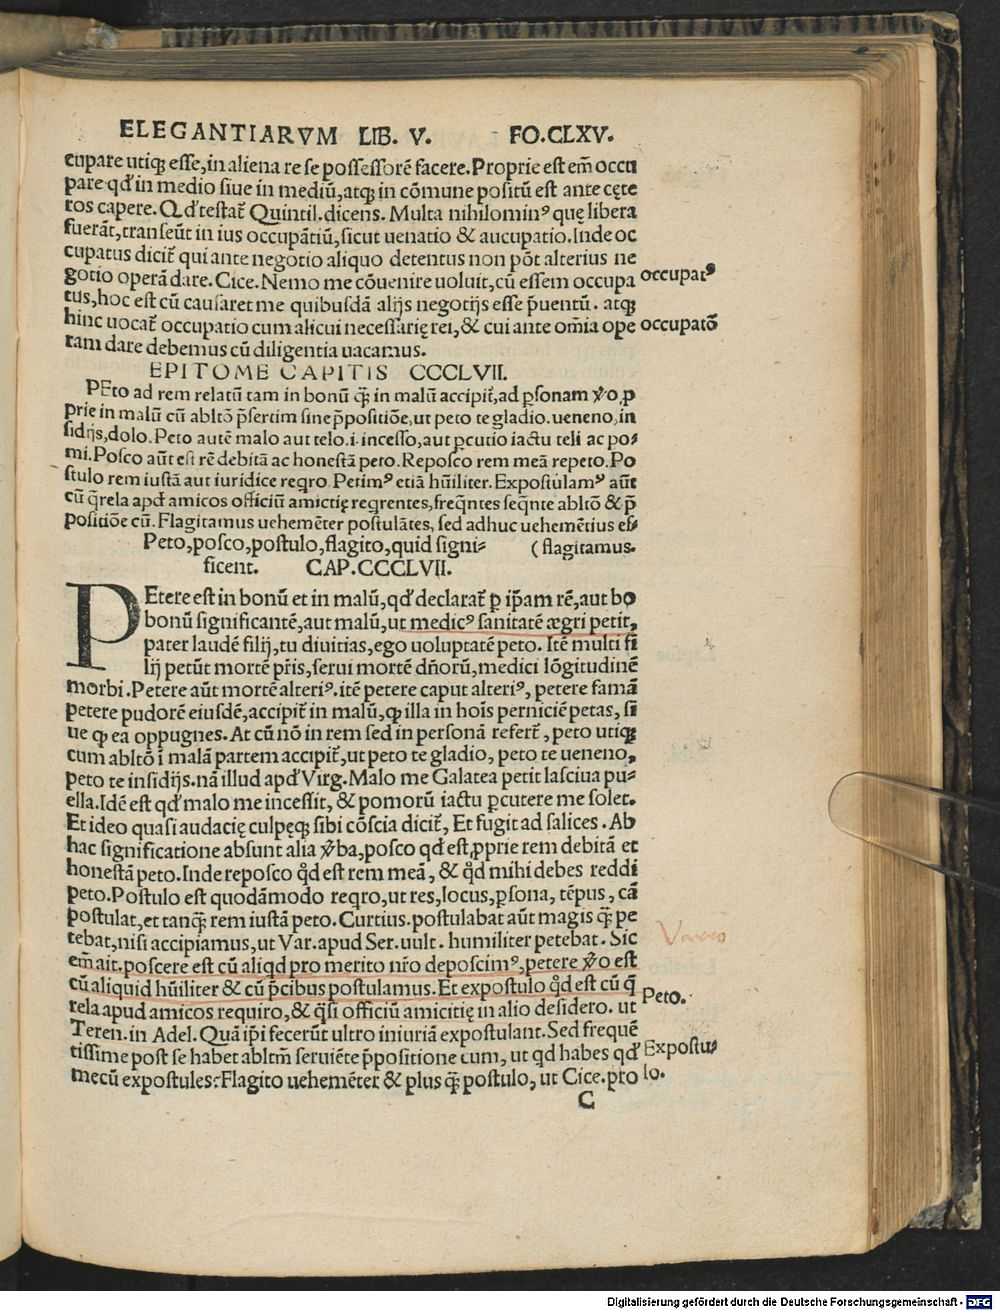 ELEGANTIARVM LIB. V. FO.CLXV.
cupare utiqȝ esse, in aliena re se possessorē facere. Proprie est em̄ occu
pare qđ in medio siue in mediū, atqȝ in cōmune positū est ante cęte
ros capere. Qđ testat᷑ Quintil. dicens. Multa nihilominꝰ quę libera
fuerāt, transeūt in ius occupātiū, sicut uenatio & aucupatio. Inde oc
cupatus dicit᷑ qui ante negotio aliquo detentus non pōt alterius ne
gotio operā dare. Cice. Nemo me cōuenire uoluit, cū essem occupa occupatꝰ
tus, hoc est cū causaret me quibusdā alijs negotijs esse p̄uentū. atqȝ
hinc uocat᷑ occupatio cum alicui necessarię rei, & cui ante om̄ia ope occupatō
ram dare debemus cū diligentia uacamus.
EPITOME CAPITIS CCCLVII.
PEto ad rem relatū tam in bonū q̄ȝ in malū accipit᷑, ad ꝑsonam v̄o, ꝓ
prie in malū cū abltō p̄sertim sine p̄positiōe, ut peto te gladio. ueneno, in
sidijs, dolo. Peto autē malo aut telo. i. incesso, aut ꝑcutio iactu teli ac po⸗
mi. Posco aūt est rē debitā ac honestā peto. Reposco rem meā repeto. Po
stulo rem iustā aut iuridice reqro. Petimꝰ etiā hūiliter. Expostulamꝰ aūt
cū q̄rela apđ amicos officiū amictię reqrentes, freq̄ntes seq̄nte abltō & p̄
positiōe cū. Flagitamus uehemēter postulātes, sed adhuc uehemētius ef⸗
Peto, posco, postulo, flagito, quid signi⸗ (flagitamus.
ficent. CAP.CCCLVII.
PEtere est in bonū et in malū, qđ declarat᷑ ꝑ ip̄am rē, aut bo
bonū significantē, aut malū, ut medicꝰ sanitatē ægri petit,
pater laudē filij, tu diuitias, ego uoluptatē peto. Itē multi fi
lij petūt mortē p̄ris, serui mortē dn̄orū, medici lōgitudinē
morbi. Petere aūt mortē alteriꝰ. itē petere caput alteriꝰ, petere famā
petere pudorē eiusdē, accipit᷑ in malū, ꝙ illa in hoīs perniciē petas, si
ue ꝙ ea oppugnes. At cū nō in rem sed in personā refert᷑, peto utiqȝ
cum abltō ī malā partem accipit᷑, ut peto te gladio, peto te ueneno,
peto te insidijs. nā illud apđ Virg. Malo me Galatea petit lasciua pu⸗
ella. Idē est qđ malo me incessit, & pomorū iactu ꝑcutere me solet.
Et ideo quasi audacię culpęqȝ sibi cōscia dicit᷑, Et fugit ad salices. Ab
hac significatione absunt alia v̄ba, posco qđ est, ꝓprie rem debitā et
honestā peto. Inde reposco qđ est rem meā, & qđ mihi debes reddi
peto. Postulo est quodāmodo reqro, ut res, locus, ꝑsona, tēpus, cā
postulat, et tanq̄ȝ rem iustā peto. Curtius. postulabat aūt magis q̄ȝ pe
tebat, nisi accipiamus, ut Var. apud Ser. uult. humiliter petebat. Sic Varro
em̄ ait. poscere est cū aliqđ pro merito nr̄o deposcimꝰ, petere v̄o est
cū aliquid hūiliter & cū p̄cibus postulamus. Et expostulo qđ est cū q̄ Peto.
rela apud amicos requiro, & q̄si officiū amicitię in alio desidero. ut
Teren. in Adel. Quā ip̄i fecerūt ultro iniuriā expostulant. Sed frequē
tissime post se habet abltm̄ seruiēte p̄positione cum, ut qd habes qđ Expostu⸗
mecū expostules: Flagito uehemēter & plus q̄ȝ postulo, ut Cice. pro lo.
C
Digitalisierung gefördert durch die Deutsche Forschungsgemeinschaft - DFG